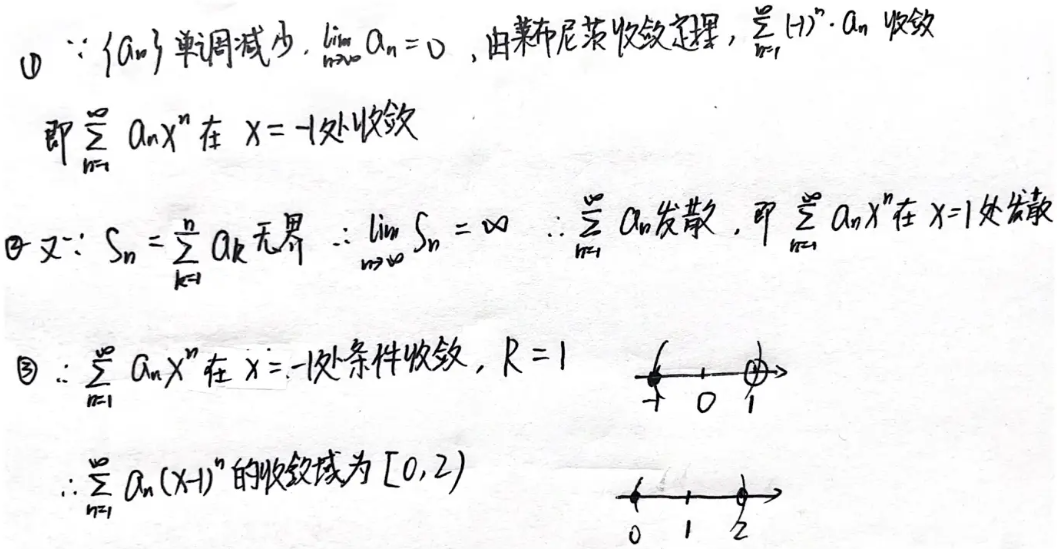 ① ∵ {aₙ} 单调减少, lim_{n→∞} aₙ = 0, 由莱布尼茨收敛定理, ∑_{n=1}^{∞} (-1)ⁿ · aₙ 收敛
即 ∑_{n=1}^{∞} aₙxⁿ 在 x = -1处收敛
② 又∵ Sₙ = ∑_{k=1}^{n} aₖ 无界 ∴ lim_{n→∞} Sₙ = ∞ ∴ ∑_{n=1}^{∞} aₙ发散, 即 ∑_{n=1}^{∞} aₙxⁿ在 x=1处发散
③ ∴ ∑_{n=1}^{∞} aₙxⁿ 在 x = -1处条件收敛, R = 1
-1 0 1
∴ ∑_{n=1}^{∞} aₙ(x-1)ⁿ 的收敛域为 [0,2)
0 1 2